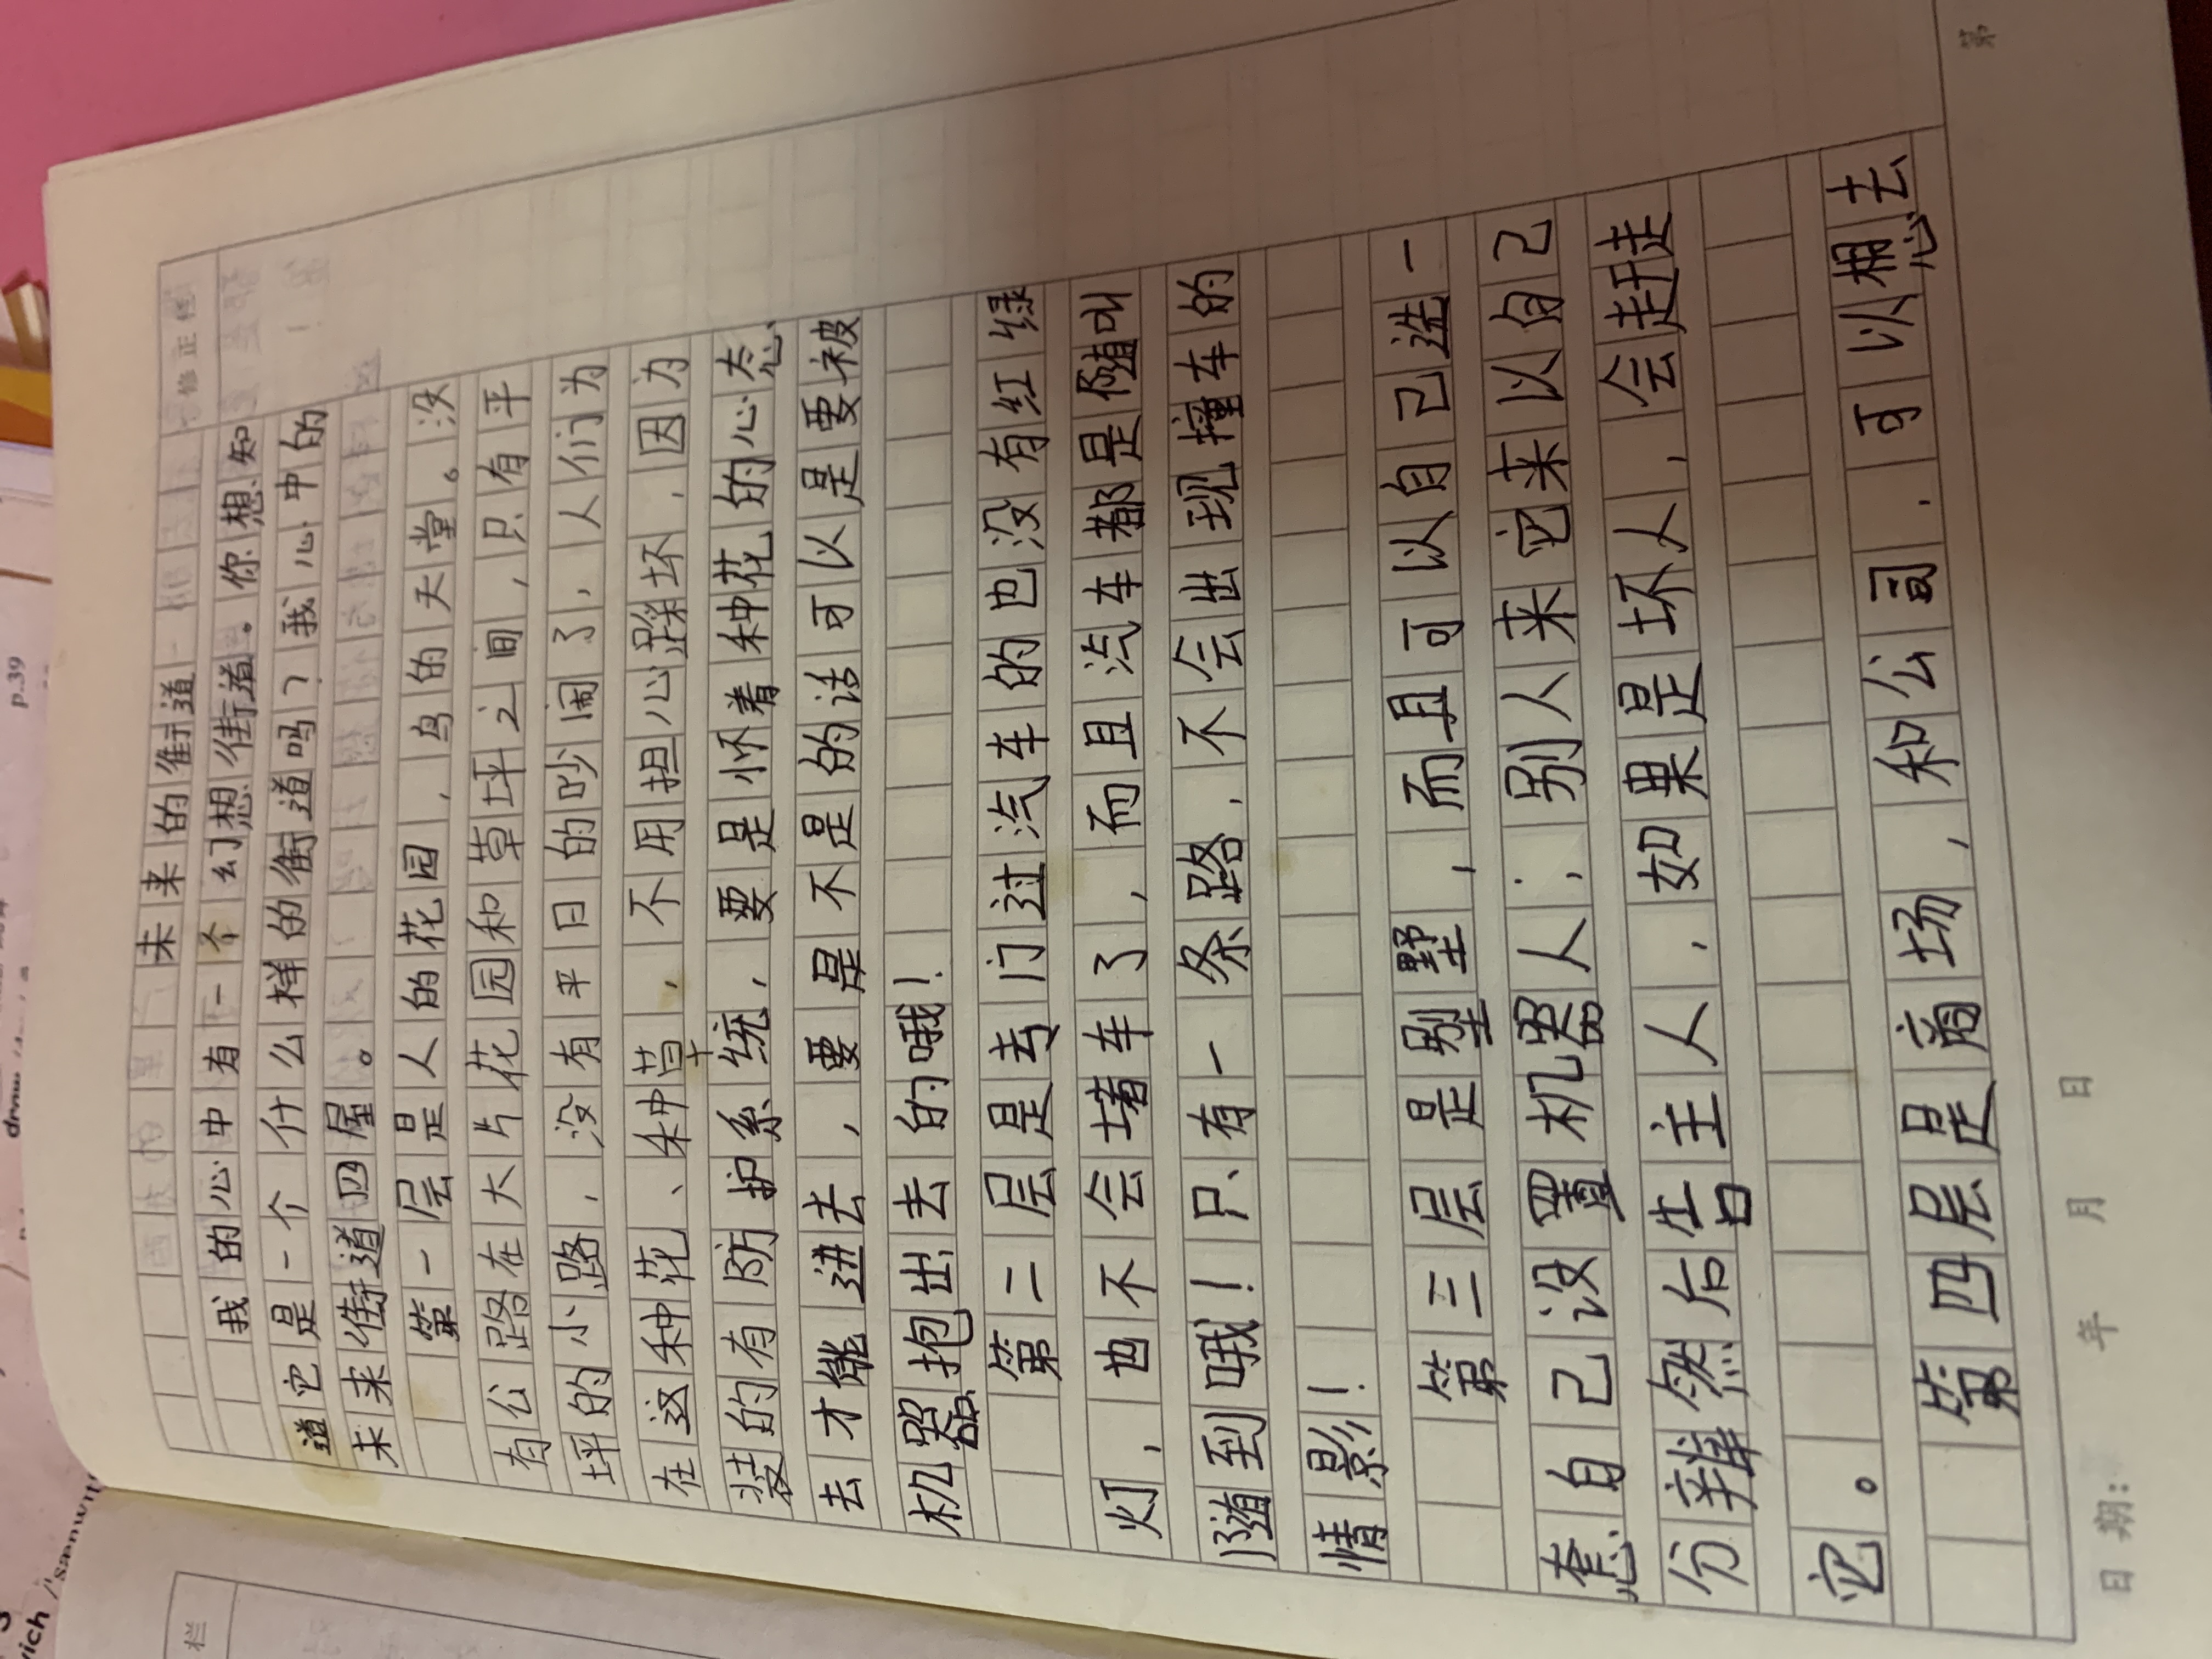 未来的街道
我的心中有一个幻想街道。你想知
道它是一个什么样的街道吗？我心中的
未来街道四屋。
第一层是人的花园，鸟的天堂。没
有公路在大片花园和草坪之间，只有平
坪的小路，没有平日的吵闹了，人们为
在这种花、种草，不用担心踩坏，因为
装的有防护系统，要是怀着种花的心态
去才能进去，要是不是的话可以是要被
机器抱出去的哦！
第二层是专门过汽车的也没有红绿
灯，也不会堵车了，而且汽车都是随叫
随到哦！只有一条路，不会出现撞车的
情影！
第三层是别墅，而且可以自己选一
套自己设置机器人；别人来它来以自己
分辨然后告主人，如果是坏人，会赶走
它。
第四层是商场，和公司．可以想去
日期： 年 月 日
第
修正栏
栏
p.39